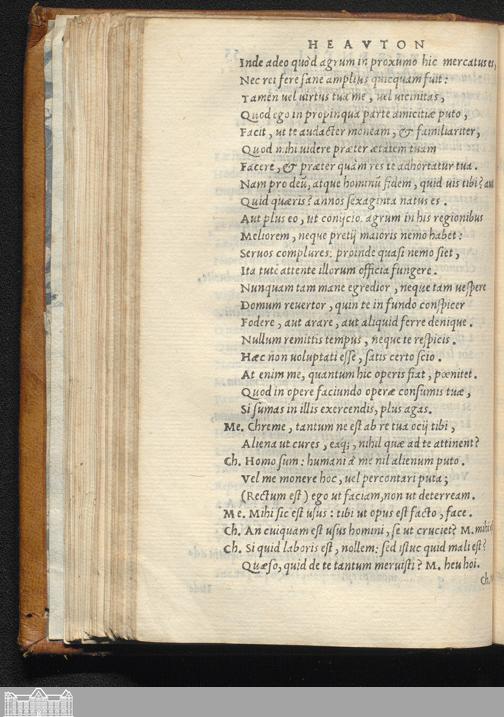 HEAVTON
Inde adeo quòd agrum in proxumo hic mercatus es,
Nec rei fere sane amplius quicquam fuit:
Tamen uel uirtus tua me, uel uicinitas,
Quod ego in propinqua parte amicitiæ puto,
Facit, ut te audacter moneam, & familiariter,
Quod mihi uidere præter ætatem tuam
Facere, & præter quàm res te adhortatur tua.
Nam pro deû, atque hominũ fidem, quid uis tibi? aut
Quid quæris? annos sexaginta natus es.
Aut plus eo, ut conijcio. agrum in his regionibus
Meliorem, neque pretij maioris nemo habet:
Seruos complures: proinde quasi nemo siet,
Ita tute attente illorum officia fungere.
Nunquam tam mane egredior, neque tam uespere
Domum reuertor, quin te in fundo conspicer
Fodere, aut arare, aut aliquid ferre denique.
Nullum remittis tempus, neque te respicis.
Hæc non uoluptati esse, satis certo scio.
At enim me, quantum hic operis fiat, pœnitet.
Quod in opere faciundo operæ consumis tuæ,
Si sumas in illis exercendis, plus agas.
Me. Chreme, tantum ne est ab re tua ocij tibi,
Aliena ut cures, eaq;, nihil quæ ad te attinent?
Ch. Homo sum: humani à me nil alienum puto.
Vel me monere hoc, uel percontari puta;
(Rectum est) ego ut faciam, non ut deterream.
Me. Mihi sic est usus: tibi ut opus est facto, face.
Ch. An cuiquam est usus homini, se ut cruciet? M. mihi
Ch. Si quid laboris est, nollem: sed istuc quid mali est?
Quæso, quid de te tantum meruisti? M. heu hoi.